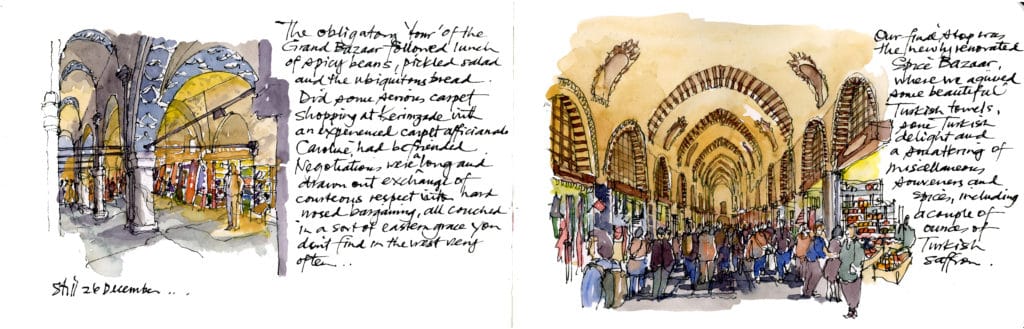 The obligatory 'tour' of the
Grand Bazaar followed lunch
of spicy beans, pickled salad
and the ubiquitous bread.
Did some serious carpet
shopping at with
an experienced carpet afficianado
Caroline had befriended.
Negotiations were a long and
drawn out exchange of
courteous respect with hard
nosed bargaining, all couched
in a sort of eastern grace you
don't find in the west very
often...
Still 26 December...
Our final stop was
the newly renovated
Spice Bazaar,
where we aquired
some beautiful
Turkish towels,
some Turkish
delight and
a smattering of
miscellaneous
souveners and
spices, including
a couple of
ounces of
Turkish
saffron.